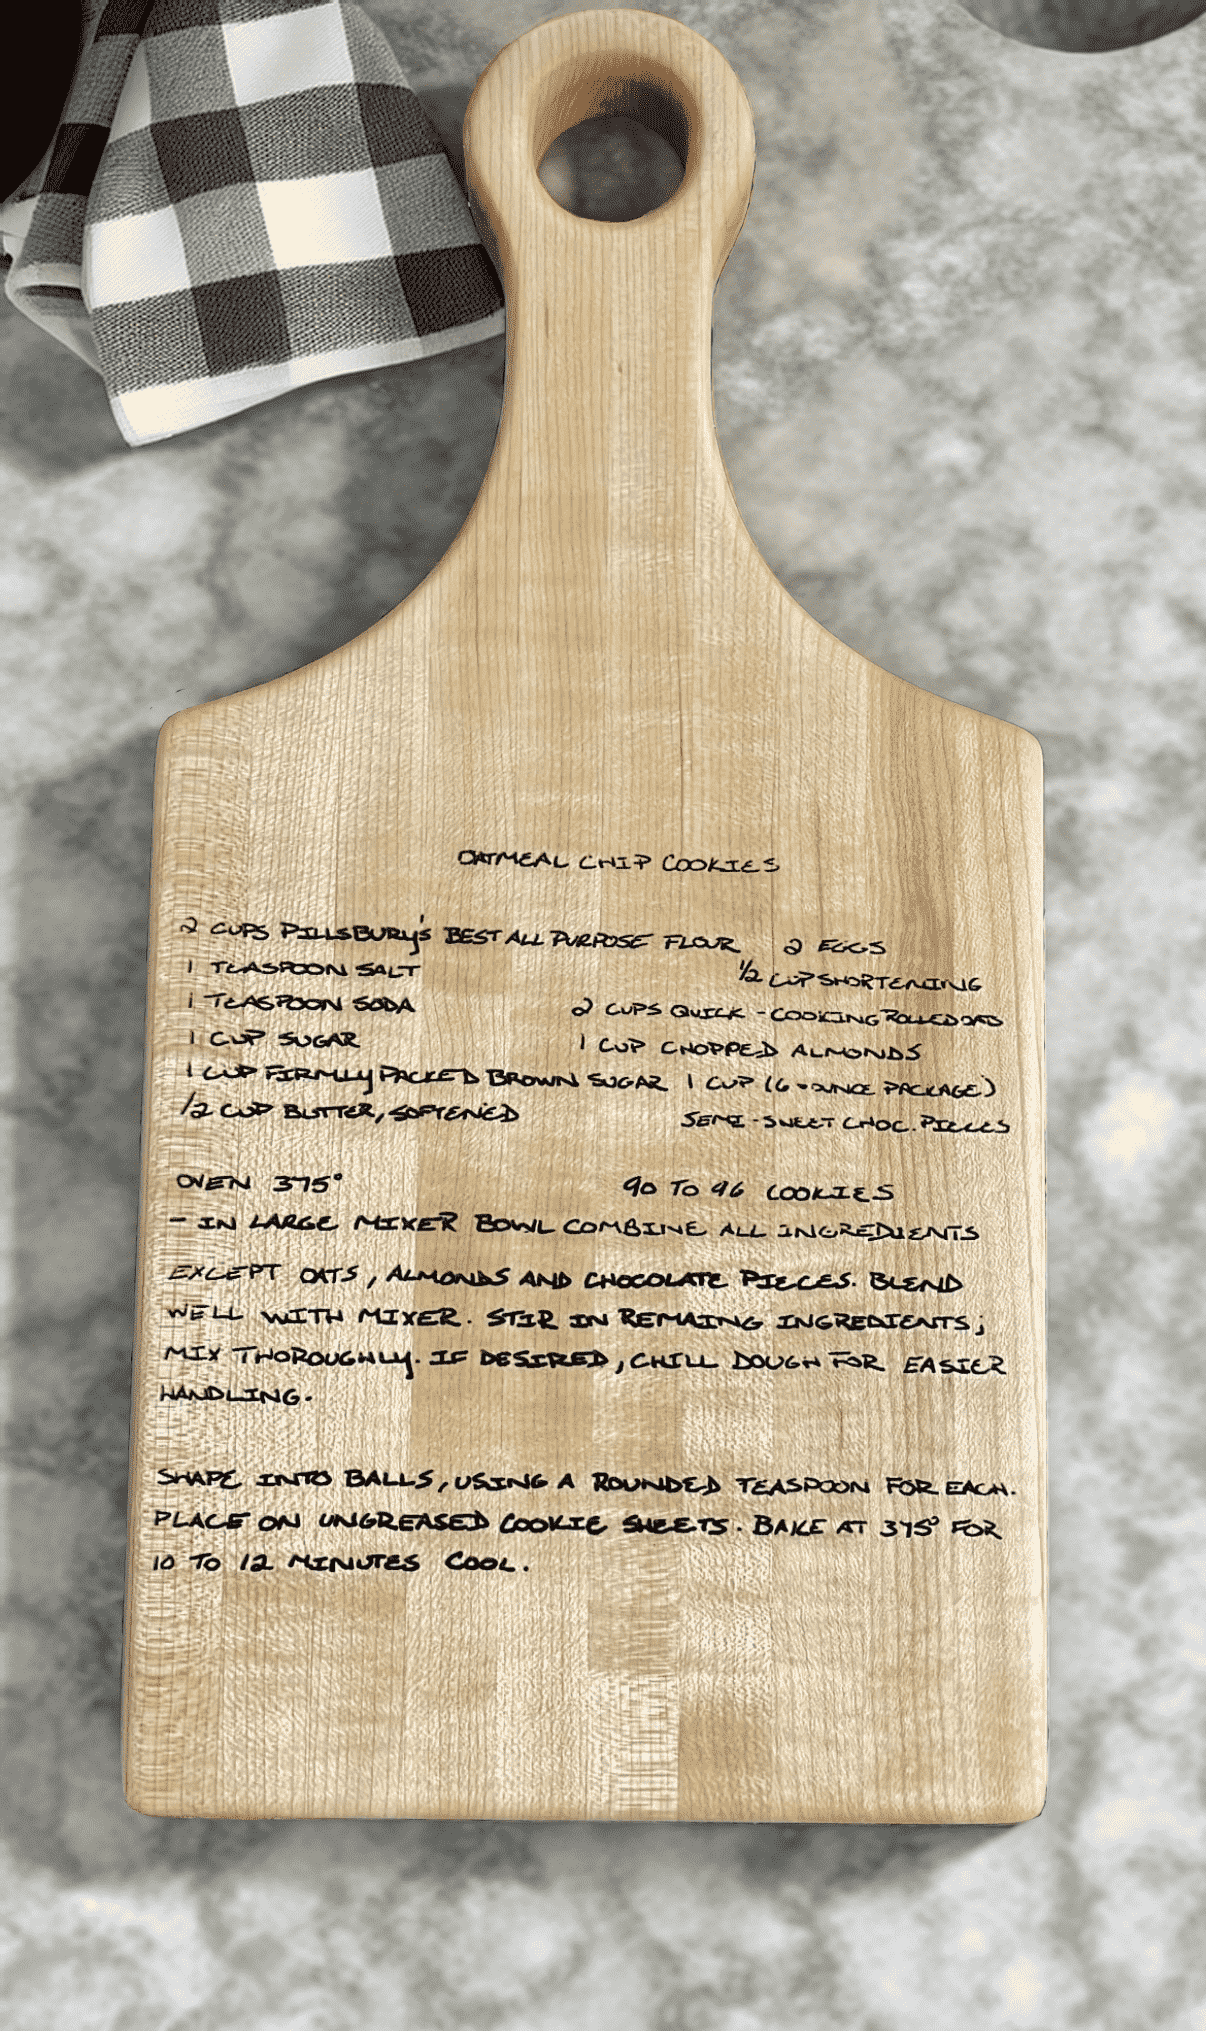 OATMEAL CHIP COOKIES
2 CUPS PILLSBURY'S BEST ALL PURPOSE FLOUR 2 EGGS
1 TEASPOON SALT 1/2 CUP SHORTENING
1 TEASPOON SODA 2 CUPS QUICK-COOKING ROLLED OATS
1 CUP SUGAR 1 CUP CHOPPED ALMONDS
1 CUP FIRMLY PACKED BROWN SUGAR 1 CUP (6-OUNCE PACKAGE)
1/2 CUP BUTTER, SOFTENED SEMI-SWEET CHOC. PIECES
OVEN 375° 90 TO 96 COOKIES
- IN LARGE MIXER BOWL COMBINE ALL INGREDIENTS
EXCEPT OATS, ALMONDS AND CHOCOLATE PIECES. BLEND
WELL WITH MIXER. STIR IN REMAING INGREDIENTS;
MIX THOROUGHLY. IF DESIRED, CHILL DOUGH FOR EASIER
HANDLING.
SHAPE INTO BALLS, USING A ROUNDED TEASPOON FOR EACH.
PLACE ON UNGREASED COOKIE SHEETS. BAKE AT 375° FOR
10 TO 12 MINUTES COOL.